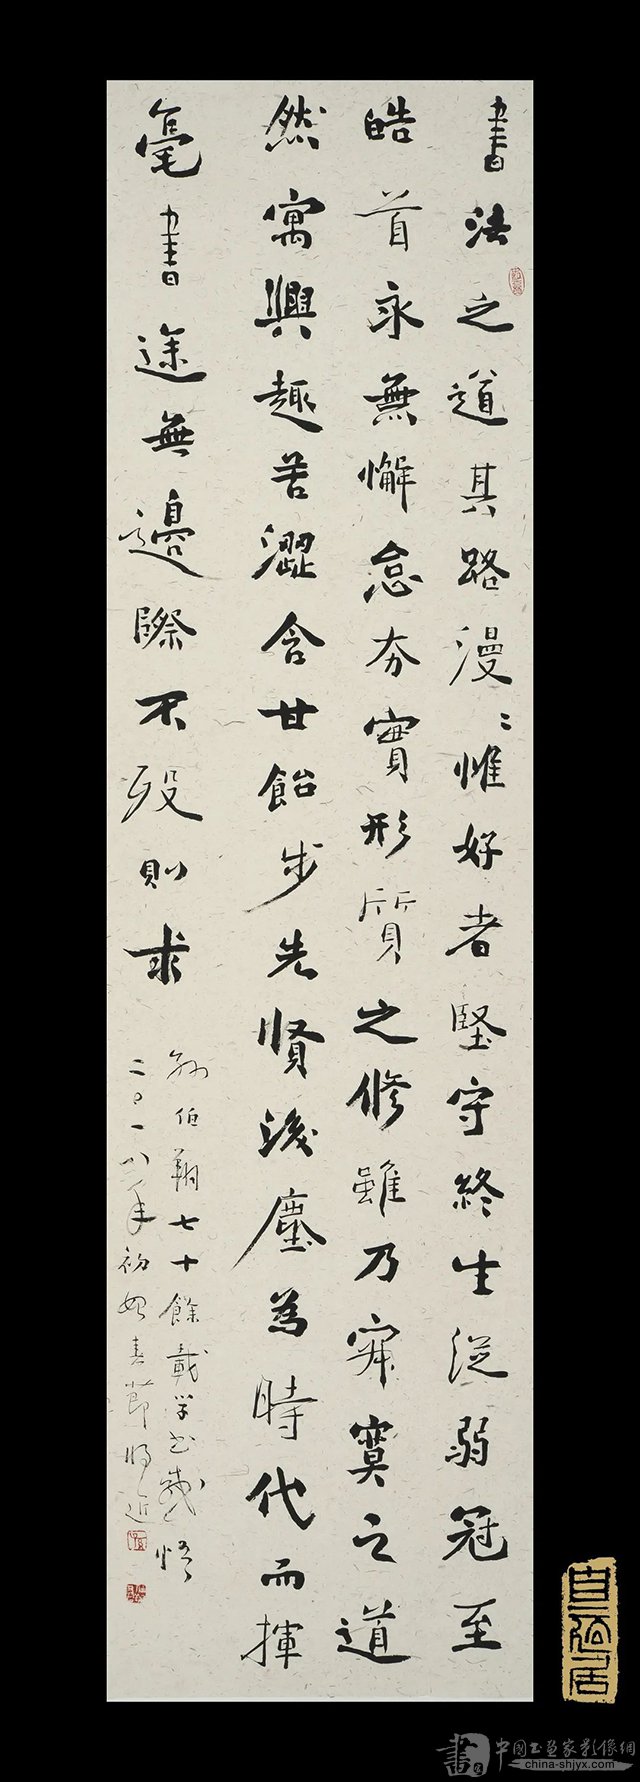 書法之道其路漫〻惟好者堅守終生從弱冠至
皓首永無懈怠夯實形質之修雖乃寂寞之道
然寓興趣苦澀含甘飴步先賢後塵為時代而揮
毫書途無邊際不歿則求
孫伯翔七十餘載学书感悟
二〇一八年初始春節將近
自砳居
書
中國书画家影像網
china-shjyx.com